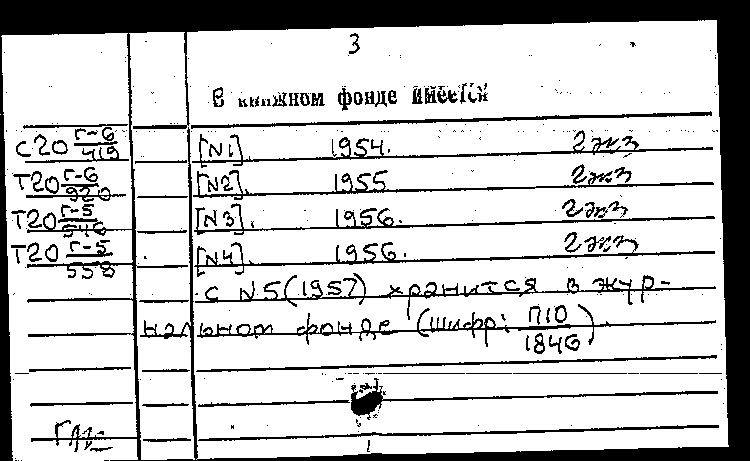 3
В книжном фонде имеется
С20 Г-6/419 [N1]. 1954. 2 экз
Т20 Г-6/920 [N2]. 1955 2 экз
Т20 Г-5/546 [N3]. 1956. 2 экз
Т20 Г-5/558 [N4]. 1956. 2 экз
с N5(1957) хранится в жур-
нальном фонде (шифр: П10/1846).